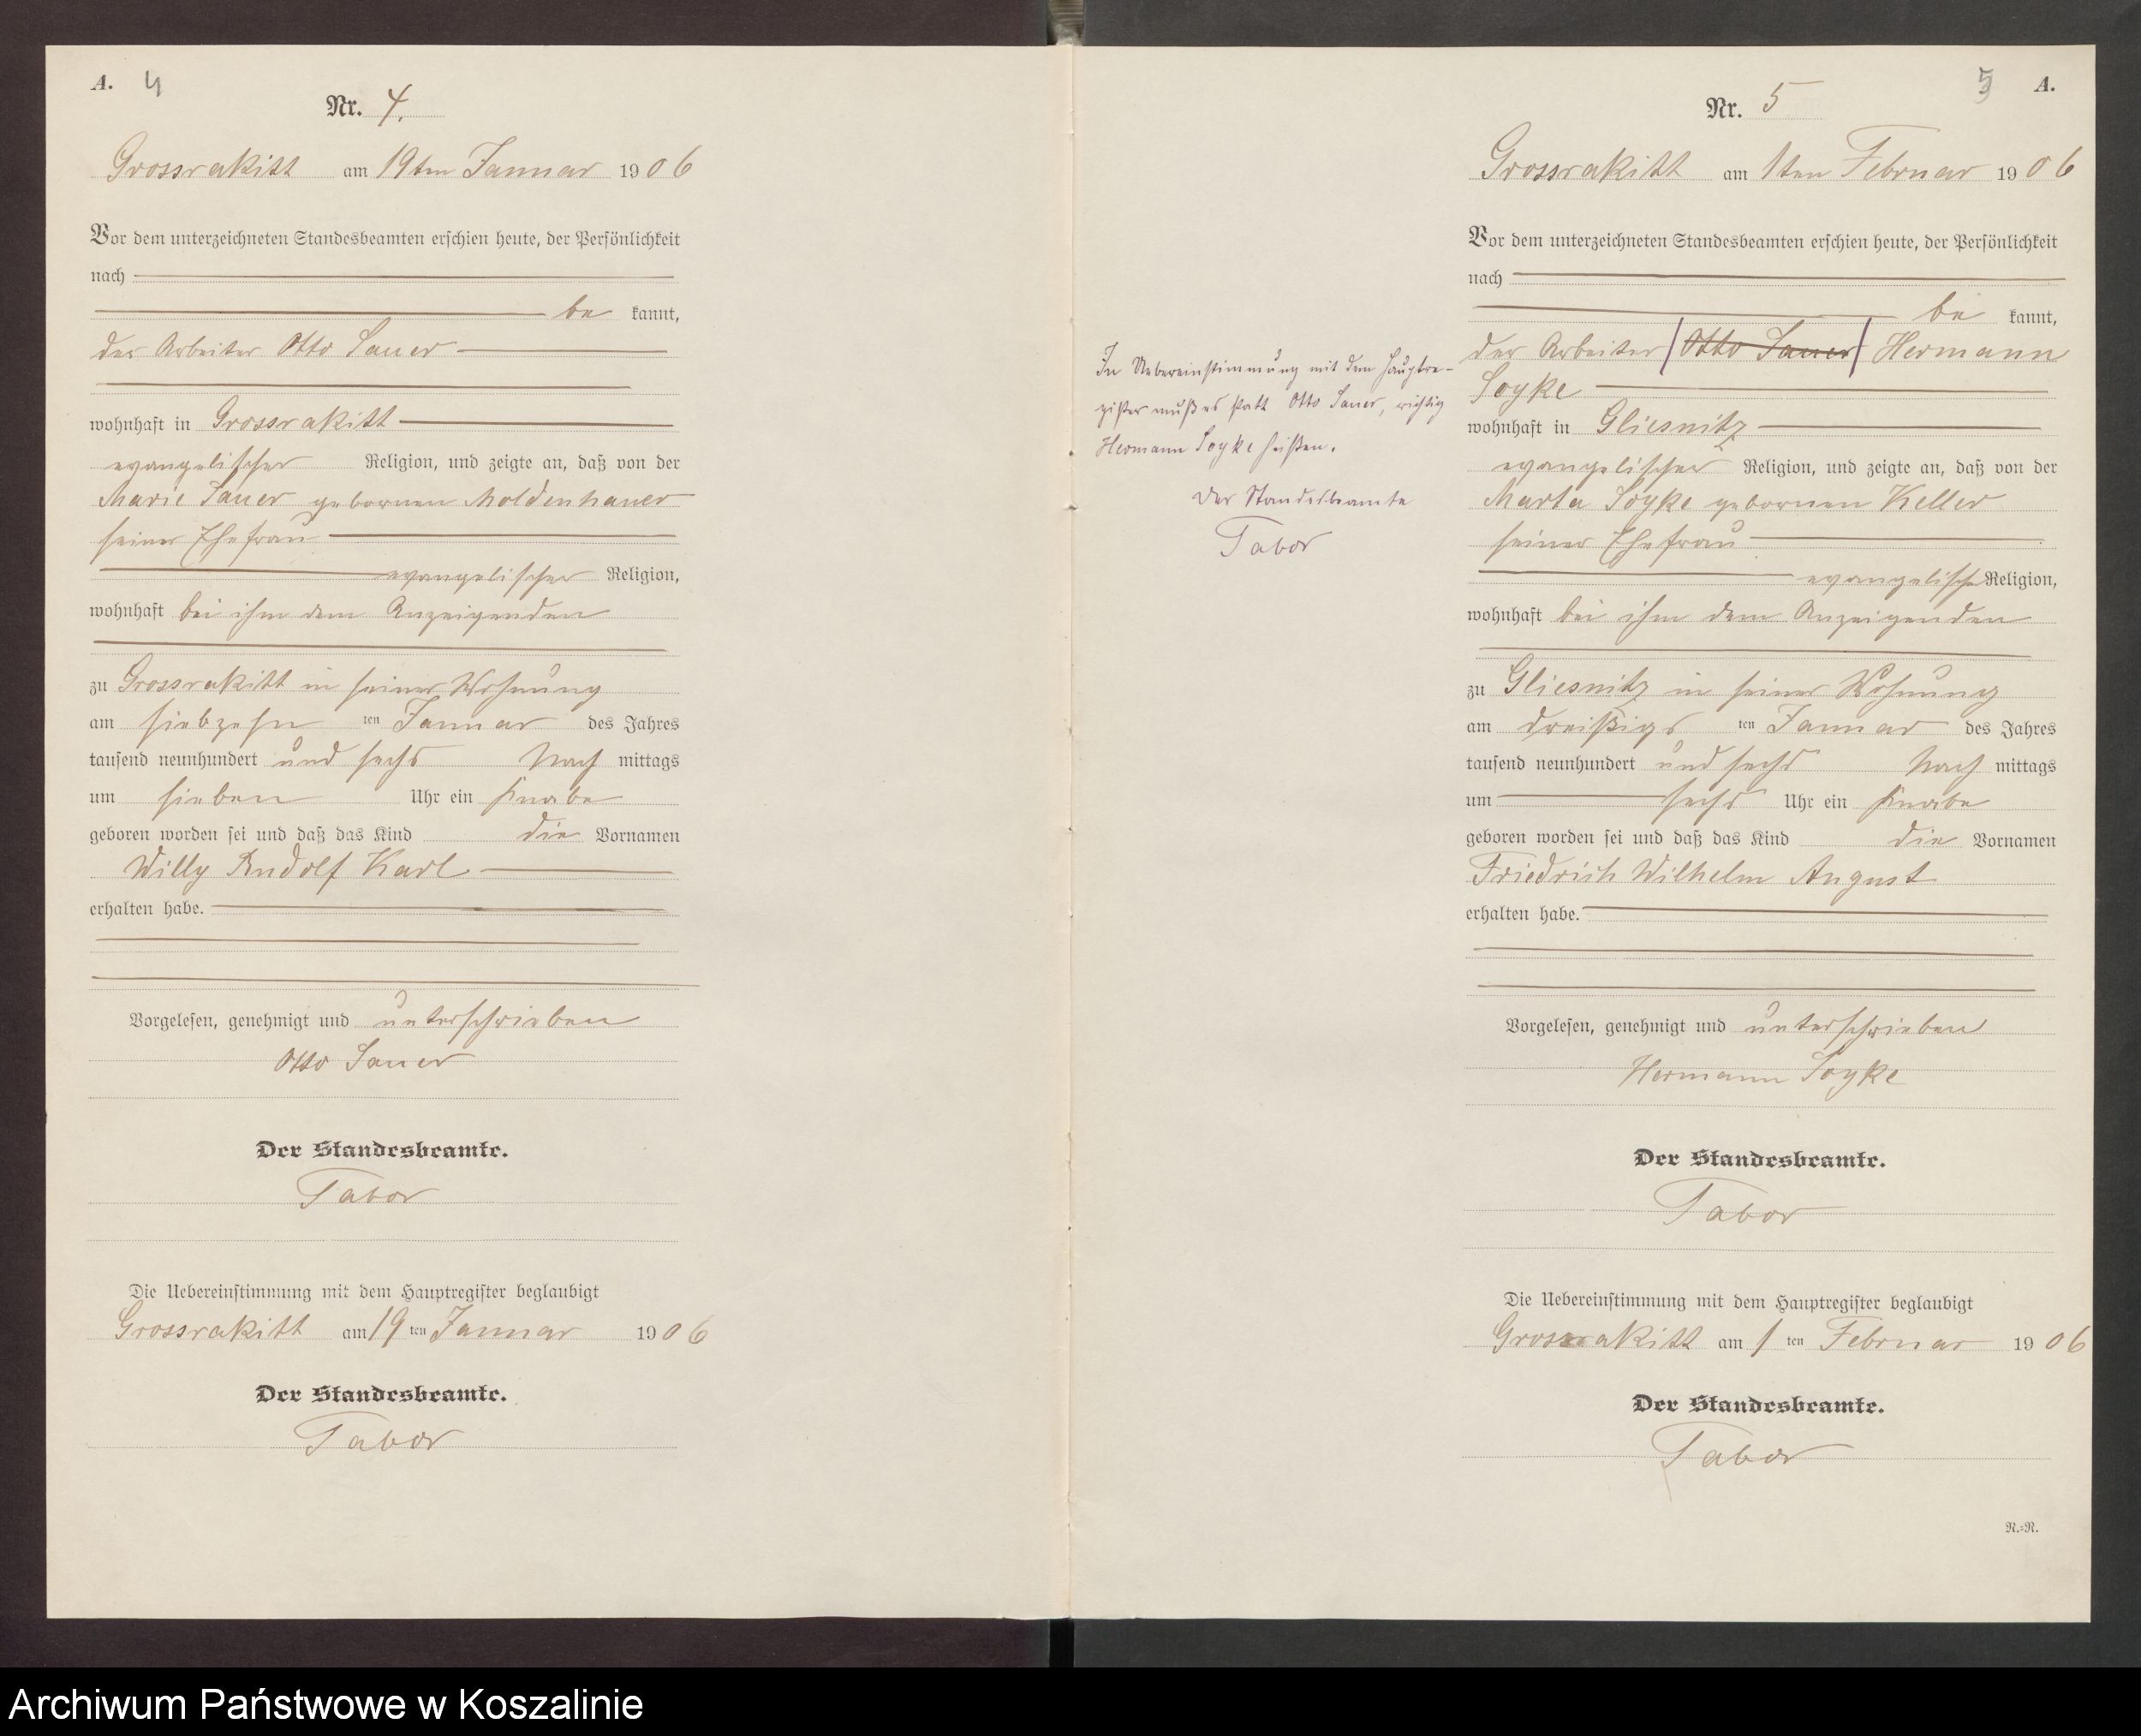 A. 4
Nr. 4.
Grossrakitt am 19ten Januar 1906
Vor dem unterzeichneten Standesbeamten erschien heute, der Persönlichkeit
nach
be kannt,
der Arbeiter Otto Sauer
wohnhaft in Grossrakitt
evangelischer Religion, und zeigte an, daß von der
Marie Sauer gebornen Moldenhauer
seiner Ehefrau
evangelischer Religion,
wohnhaft bei ihm dem Anzeigenden
zu Grossrakitt in seiner Wohnung
am siebzehn ten Januar des Jahres
tausend neunhundert und sechs Nach mittags
um sieben Uhr ein Knabe
geboren worden sei und daß das Kind die Vornamen
Willy Rudolf Karl
erhalten habe.
Vorgelesen, genehmigt und unterschrieben
Otto Sauer
Der Standesbeamte.
Tabor
Die Uebereinstimmung mit dem Hauptregister beglaubigt
Grossrakitt am 19 ten Januar 1906
Der Standesbeamte.
Tabor
5 A.
Nr. 5
Grossrakitt am 1ten Februar 1906
Vor dem unterzeichneten Standesbeamten erschien heute, der Persönlichkeit
nach
be kannt,
der Arbeiter Otto Sauer Hermann
Soyke
wohnhaft in Gliesnitz
evangelischer Religion, und zeigte an, daß von der
Marta Soyke gebornen Keller
seiner Ehefrau
evangelischer Religion,
wohnhaft bei ihm dem Anzeigenden
zu Gliesnitz in seiner Wohnung
am dreißigs ten Januar des Jahres
tausend neunhundert und sechs Nach mittags
um sechs Uhr ein Knabe
geboren worden sei und daß das Kind die Vornamen
Friedrich Wilhelm August
erhalten habe.
Vorgelesen, genehmigt und unterschrieben
Hermann Soyke
Der Standesbeamte.
Tabor
Die Uebereinstimmung mit dem Hauptregister beglaubigt
Grossrakitt am 1 ten Februar 1906
Der Standesbeamte.
Tabor
R.=R.
In Uebereinstimmung mit dem Hauptre-
gister muß es statt Otto Sauer, richtig
Hermann Soyke heißen.
Der Standesbeamte
Tabor
Archiwum Państwowe w Koszalinie